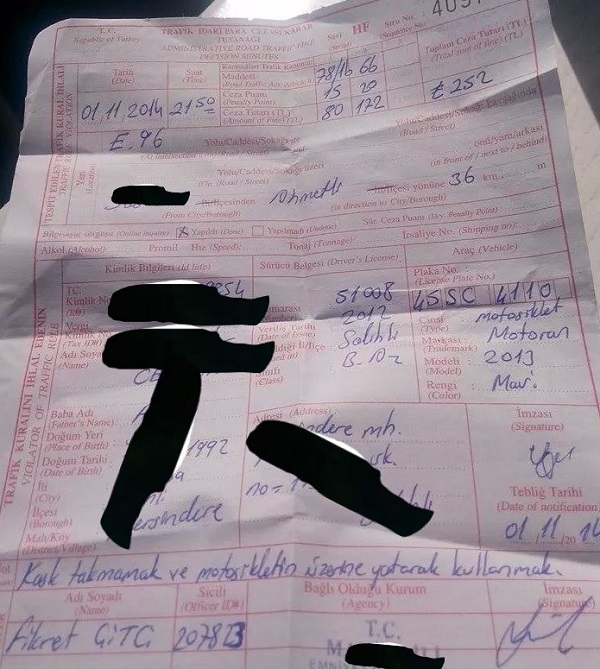 T.C.
Republic of Turkey
TRAFİK İDARİ PARA CEZASI KARAR
TUTANAĞI
ADMINISTRATIVE ROAD TRAFFIC FINE
DECISION MINUTES
Seri
(Serial)
HF
Sıra No.
Tarih
(Date)
Saat
(Time)
01/11/2014 21 50
Karayolları Trafik Kanunu
Maddesi
78/1b 66
Ceza Puanı
(Penalty Point)
15 20
Ceza Tutarı (TL)
(Amount of Fine) (TL)
80 172
Toplam Ceza Tutarı (TL)
(Total sum of fine) (TL)
₺ 252
TESPİT EDİLEN TRAFİK KURAL İHLALİ
TRAFFIC RULE VIOLATION
Yeri
(Location)
E.96
Yolu/Caddesi/Sokağında
(Road / Street)
Yolu/Caddesi/Sokağı kavşağında
(Road / Street)
Yolu/Caddesi/Sokağı üzeri
(On Road / Street)
önü/yanı/arkası
(in front of / next to / behind)
İl/İlçesinden
(From City/Borough)
Ahmetli
İl/İlçesi yönüne 36 km. m
(in direction to City/Borough)
Bilgisayar sorgusu (Online inquiry) X Yapıldı (Done) Yapılmadı (Undone)
Sür. Ceza Puanı (Drv. Penalty Point):
Alkol (Alcohol): Promil Hız (Speed): Tonaj (Tonnage): İrsaliye No. (Shipping no):
TRAFİK KURALINI İHLAL EDENİN
VIOLATOR OF TRAFFIC RULE
Kimlik Bilgileri (Id Info)
Sürücü Belgesi (Driver's License)
Araç (Vehicle)
T.C.
Kimlik No
(Id#)
Vergi
Kimlik No
(Tax ID#)
Adı Soyadı
(Name)
51008
2012
Verildiği Tarihi
Salihli
Sınıfı
(Class)
Plaka No.
(License Plate No.)
45 SC 4110
Cinsi
(Type)
motosiklet
Markası
(Trademark)
Motoran
Modeli
(Model)
2013
Rengi
(Color)
Mavi
Baba Adı
(Father's Name):
Doğum Yeri
(Place of Birth)
Doğum Tarihi
(Date of Birth)
1992
İli
(City)
İlçesi
(Borough)
Mah/Köy
(District/Village)
ersindere
Adresi (Address)
dere mh.
no=1
İmzası
(Signature)
Tebliğ Tarihi
(Date of notification)
01/11/2014
Kask takmamak ve motosikletin üzerine yatarak kullanmak.
Adı Soyadı
(Name)
Sicili
(Officer ID#)
Bağlı Olduğu Kurum
(Agency)
İmzası
(Signature)
Fikret ÇİTÇİ
T.C.